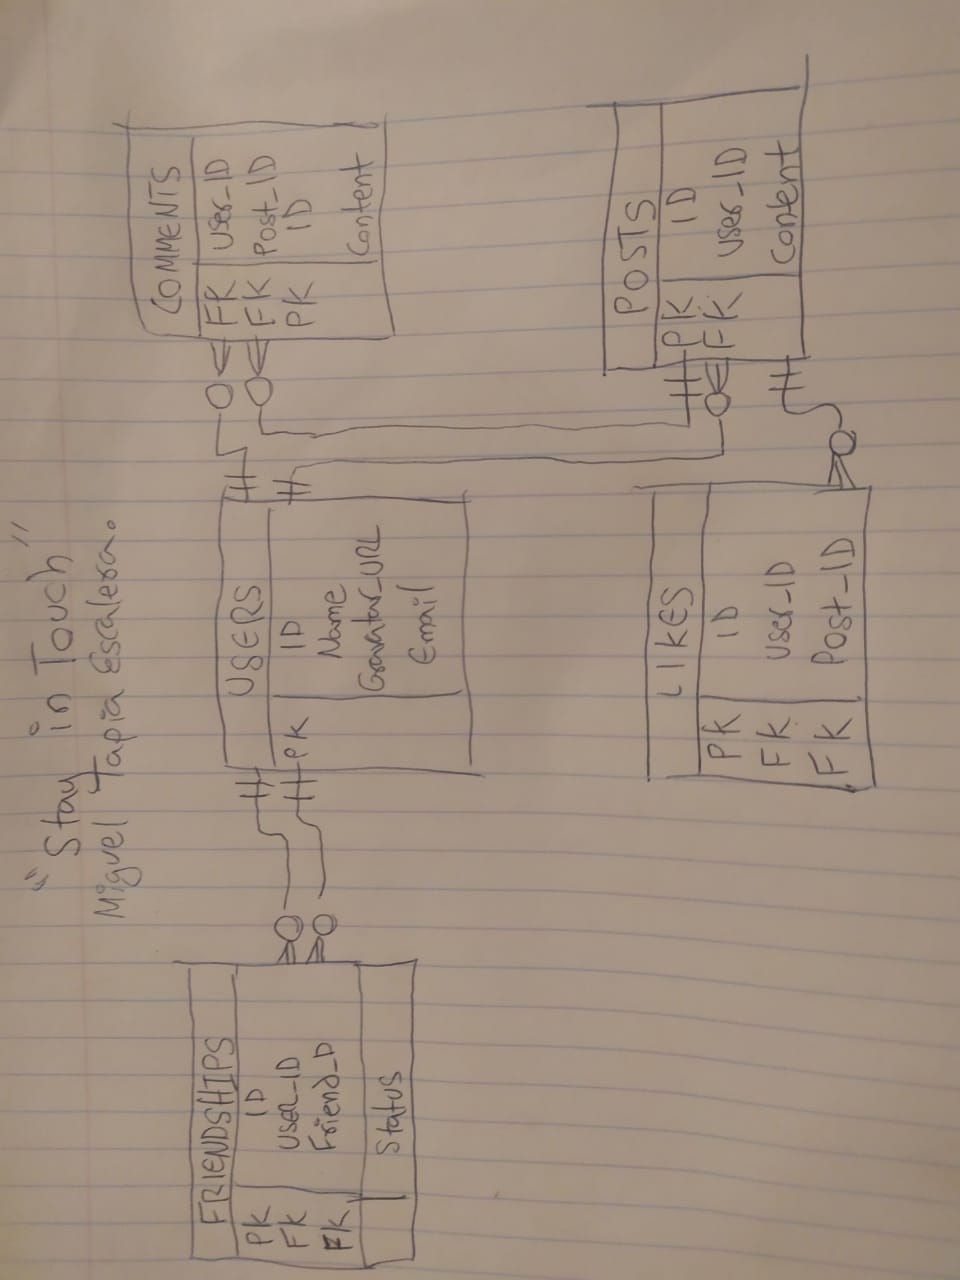 "Stay in Touch"
Miguel Tapia Escalera.
FRIENDSHIPS
PK ID
FK USER_ID
FK Friend_D
Status
USERS
PK ID
Name
Gravatar_URL
Email
COMMENTS
FK User_ID
FK Post_ID
PK ID
Content
LIKES
PK ID
FK User_ID
FK Post_ID
POSTS
PK ID
FK User_ID
Content